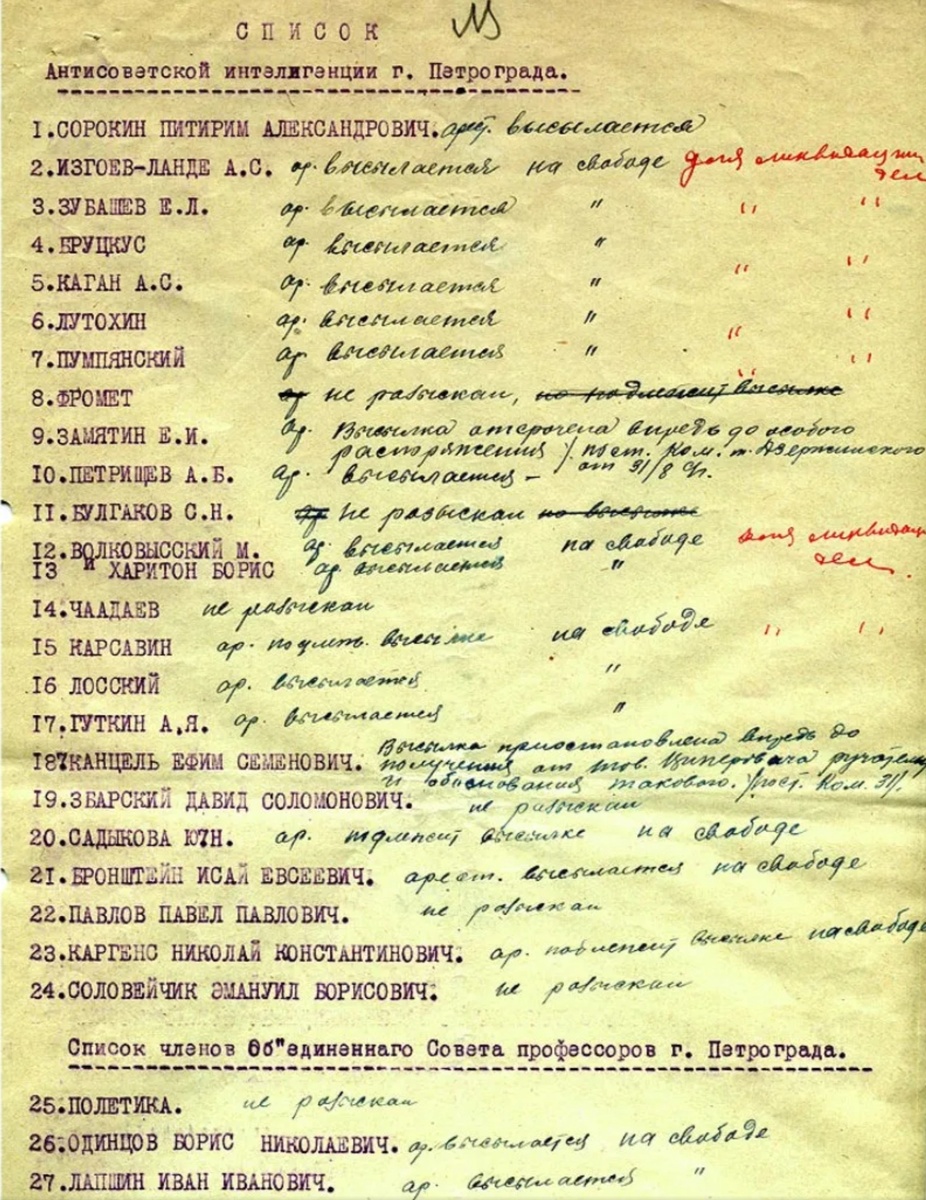 СПИСОК
Антисоветской интелигенции г. Петрограда.
1.СОРОКИН ПИТИРИМ АЛЕКСАНДРОВИЧ. арест. высылается
2.ИЗГОЕВ-ЛАНДЕ А.С. ар. высылается на свободе для ликвидации дел
3.ЗУБАШЕВ Е.Л. ар. высылается " " "
4.БРУЦКУС ар. высылается " " "
5.КАГАН А.С. ар. высылается " " "
6.ЛУТОХИН ар. высылается " " "
7.ПУМПЯНСКИЙ ар. высылается " " "
8.ФРОМЕТ ар не разыскан, но подлежит высылке
9.ЗАМЯТИН Е.И. ар. Высылка отсрочена впредь до особого
распоряжения /пост. Ком. т. Дзержинского
от 31/8
10.ПЕТРИЩЕВ А.Б. ар. высылается –
11.БУЛГАКОВ С.Н. ар не разыскан но высылке
12.ВОЛКОВЫССКИЙ М. ар. высылается на свободе для ликвидации
13 И ХАРИТОН БОРИС ар высылается " дел.
14.ЧААДАЕВ не разыскан
15 КАРСАВИН ар. высылке на свободе " "
16 ЛОССКИЙ ар. высылается "
17.ГУТКИН А.Я. ар. высылается
187КАНЦЕЛЬ ЕФИМ СЕМЕНОВИЧ. Высылка приостановлена впредь до
получения от тов. Циперовича
и обоснования такового. /пост. Ком. 31/.
19.ЗБАРСКИЙ ДАВИД СОЛОМОНОВИЧ. не разыскан
20.САДЫКОВА Ю7Н. ар. подлежит высылке на свободе
21.БРОНШТЕЙН ИСАЙ ЕВСЕЕВИЧ. арест. высылается на свободе
22.ПАВЛОВ ПАВЕЛ ПАВЛОВИЧ. не разыскан
23.КАРГЕНС НИКОЛАЙ КОНСТАНТИНОВИЧ. ар. подлежит высылке на свободе
24.СОЛОВЕЙЧИК ЭМАНУИЛ БОРИСОВИЧ. не разыскан
Список членов Об"единеннаго Совета профессоров г. Петрограда.
25.ПОЛЕТИКА. не разыскан
26.ОДИНЦОВ БОРИС НИКОЛАЕВИЧ. ар. высылается на свободе
27.ЛАПШИН ИВАН ИВАНОВИЧ. ар. высылается "